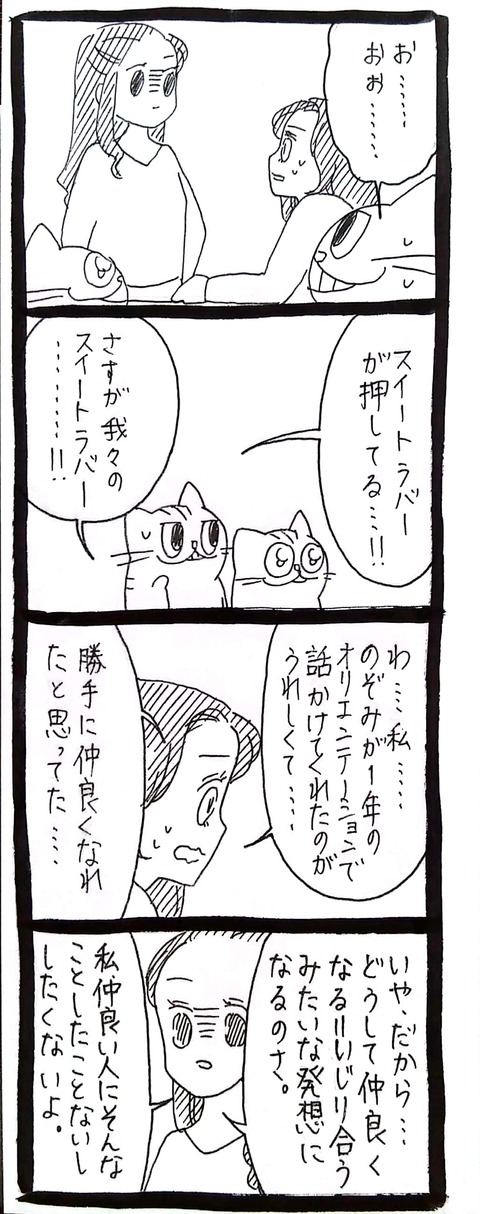 お……
おぉ……
スイートラバー
が押してる…!!
さすが我々の
スイートラバー
………!!
わ……私……
のぞみが1年の
オリエンテーションで
話かけてくれたのが
うれしくて……
勝手に仲良くなれ
たと思ってた……
いや、だから…
どうして仲良く
なる=いじり合う
みたいな発想に
なるのさ。
私仲良い人にそんな
ことしたことないし
したくないよ。